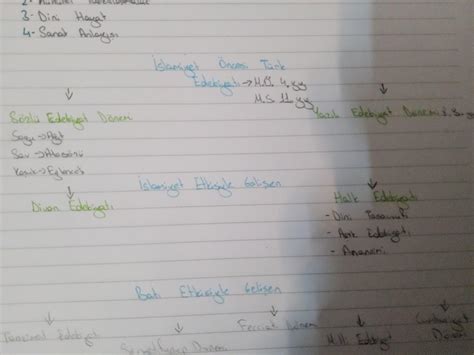 3- Dini Hayat
4- Sanat Anlayışı
İslamiyet Öncesi Türk
Edebiyatı → M.Ö. 4. yy
M.S. 11 yy
Sözlü Edebiyat Dönemi
Yazılı Edebiyat Dönemi
Sagu → Ağıt
Sav → Atasözü
İslamiyet Etkisiyle Gelişen
Divan Edebiyatı
Halk Edebiyatı
- Dini Tasavvufi
- Aşık Edebiyatı
- Anonim
Batı Etkisiyle Gelişen
Tanzimat Edebiyatı
Servetifünun Dönemi
Fecriati Dönemi
Milli Edebiyat